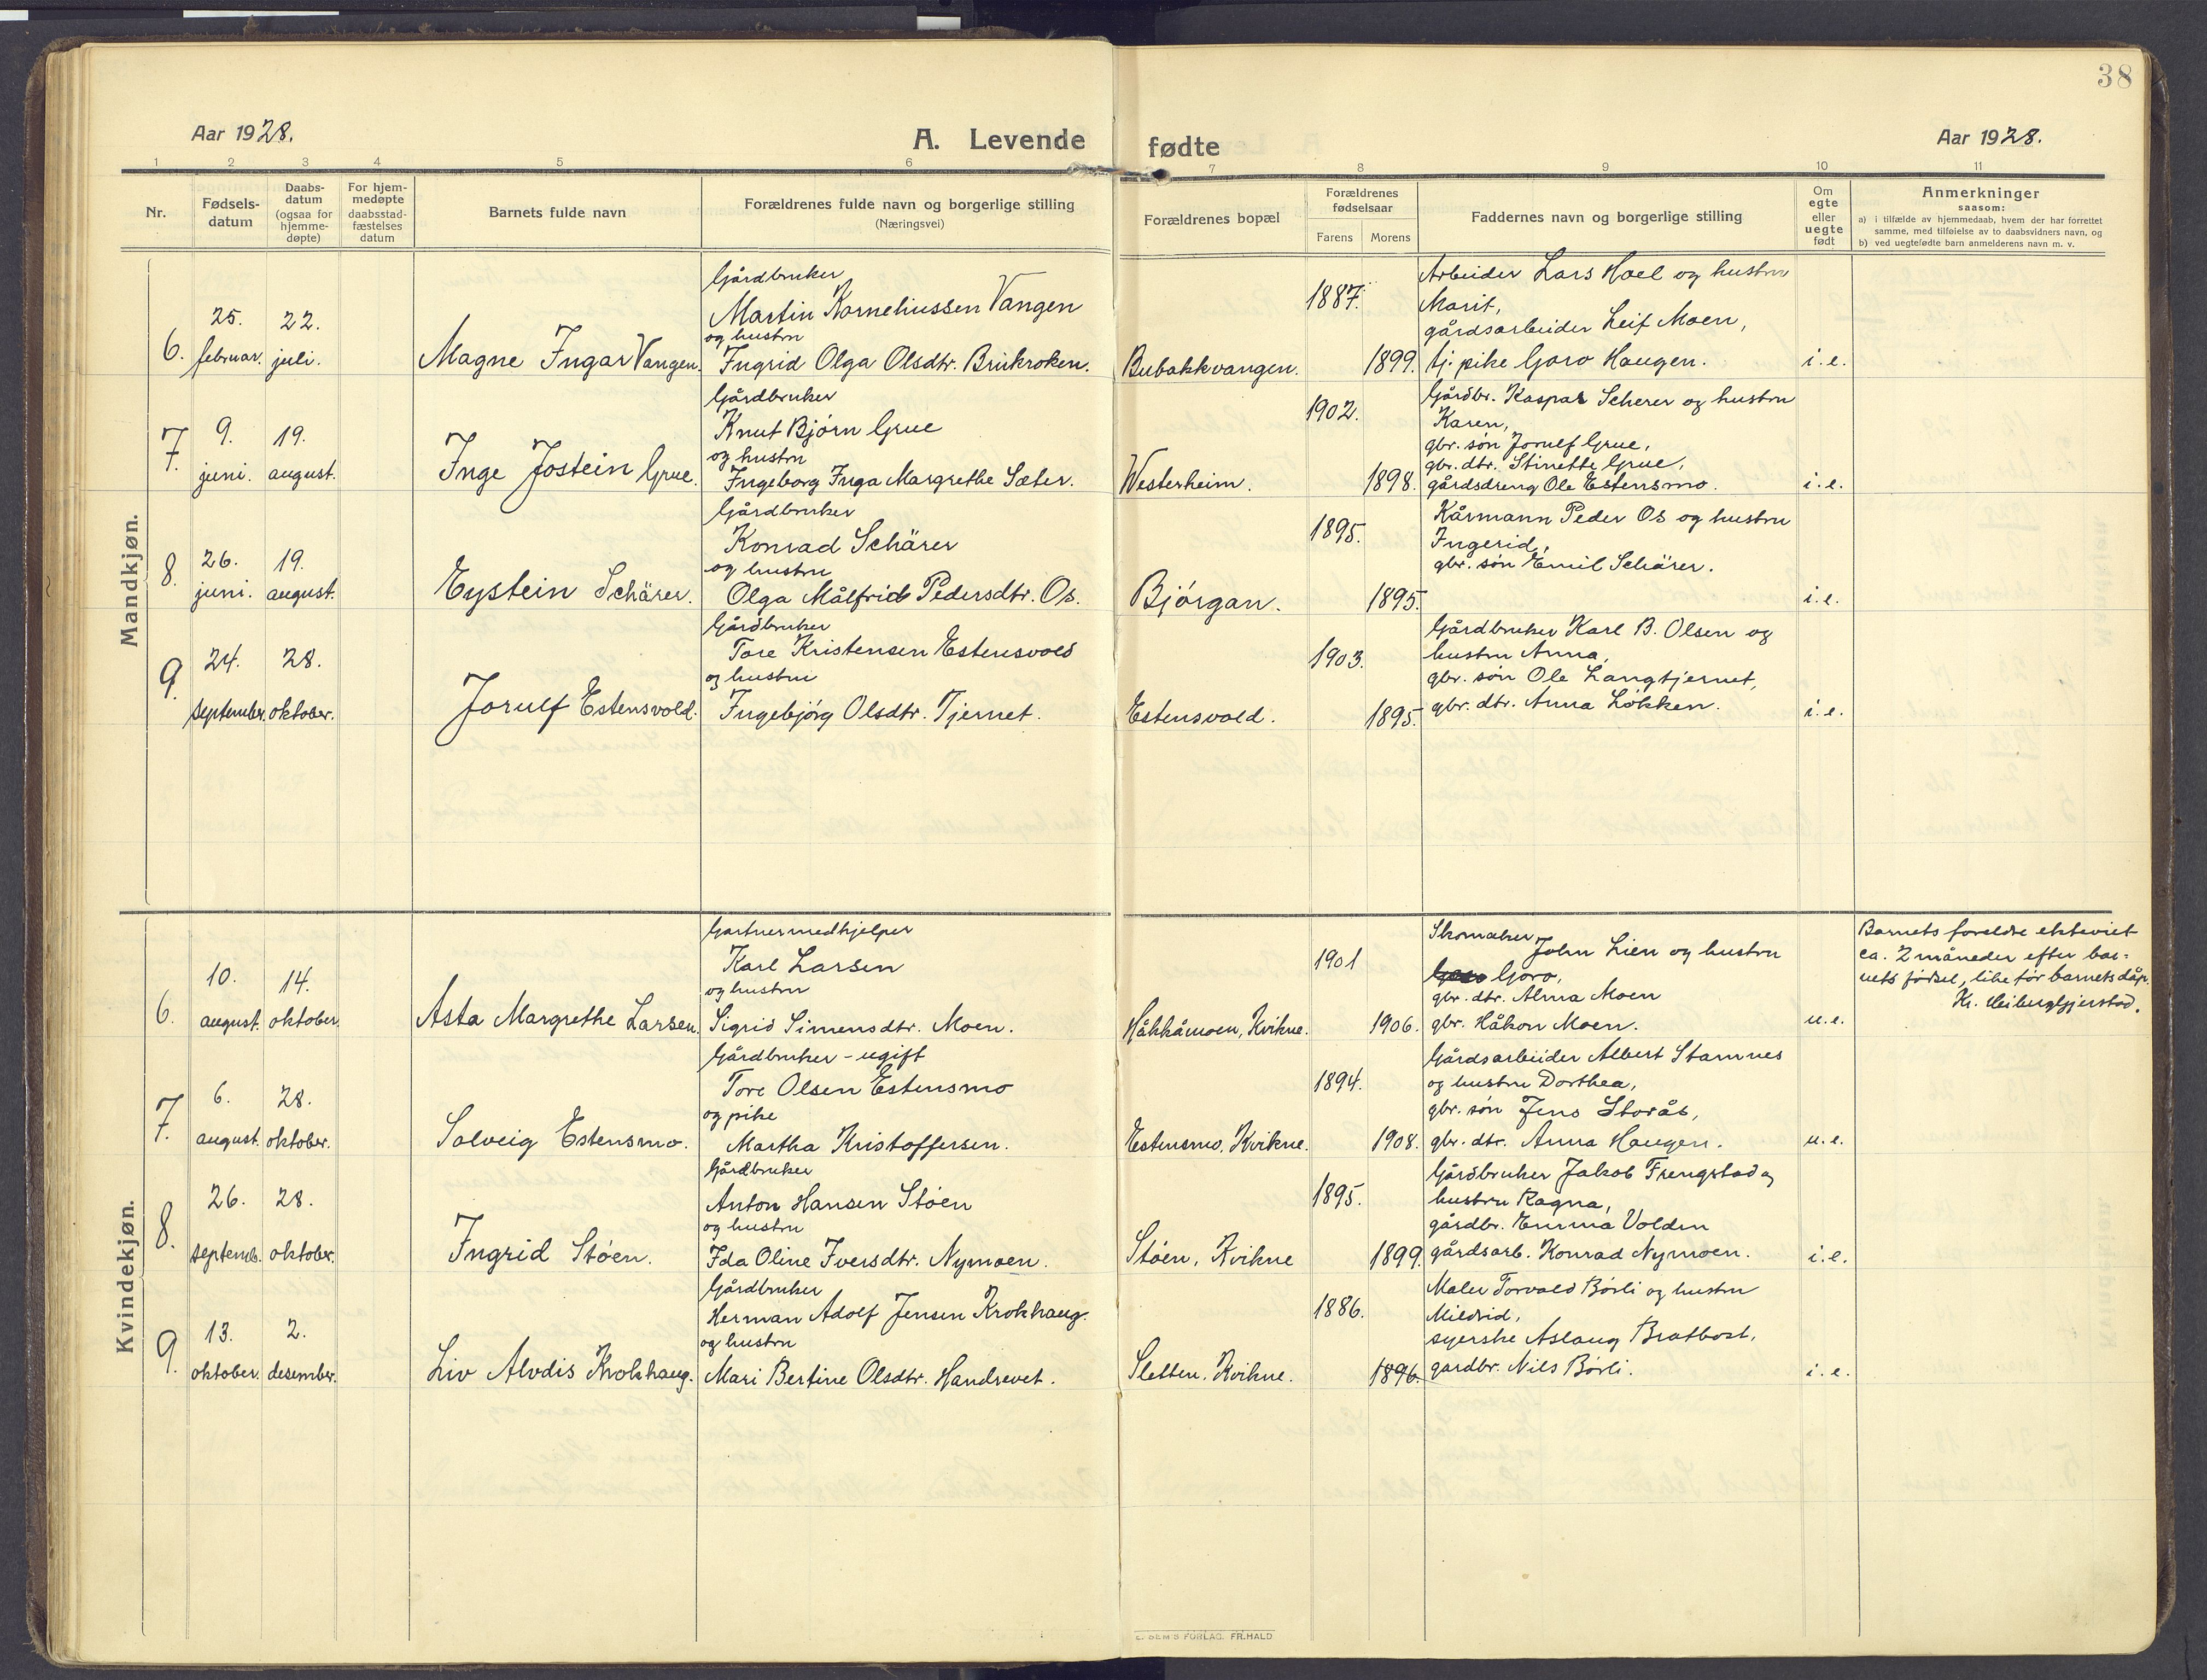 38
Aar 1928.
A. Levende fødte
Aar 1928.
1 2 3 4 5 6 7 8 9 10 11
Nr.
Fødsels-
datum
Daabs-
datum
(ogsaa for
hjemme-
døpte)
For hjem-
medøpte
daabsstad-
fæstelses
datum
Barnets fulde navn
Forældrenes fulde navn og borgerlige stilling
(Næringsvei)
Forældrenes bopæl
Forældrenes
fødselsaar
Farens Morens
Faddernes navn og borgerlige stilling
Om
egte
eller
uegte
født
Anmerkninger
saasom:
a) i tilfælde av hjemmedaab, hvem der har forrettet
samme, med tilføielse av to daabsvidners navn, og
b) ved uegtefødte barn anmelderens navn m. v.
Mandkjøn.
6.
25.
februar.
22.
juli.
Magne Ingar Vangen.
Gårdbruker
Martin Korneliussen Vangen
og hustru
Ingrid Olga Olsdtr. Brukroken.
Bubakkvangen.
1887.
1899.
Arbeider Lars Hoel og hustru
Marit,
gårdsarbeider Leif Moen,
tj. pike Goro Haugen.
i.e.
7.
9.
juni.
19.
august.
Inge Jostein Grue.
Gårdbruker
Knut Bjørn Grue
og hustru
Ingeborg Inga Margrethe Sæter.
Westerheim.
1902.
1898.
Gårdbr. Kaspar Scherer og hustru
Karen,
gbr. søn Jorulf Grue,
gbr. dtr. Stinette Grue,
gårdsdreng Ole Estensmo.
i.e.
8.
26.
juni.
19.
august.
Eystein Schärer.
Gårdbruker
Konrad Schärer
og hustru
Olga Målfrid Pedersdtr. Os.
Bjørgan.
1895.
1895.
Kårmann Peder Os og hustru
Ingerid,
gbr. søn Emil Schärer.
i.e.
9.
24.
september.
28.
oktober.
Jorulf Estensvold.
Gårdbruker
Tore Kristensen Estensvold
og hustru
Ingebjörg Olsdtr. Tjernet.
Estensvold.
1903.
1895.
Gårdbruker Karl B. Olsen og
hustru Anna,
gbr. søn Ole Langtjernet,
gbr. dtr. Anna Løkken.
i.e.
Kvindekjøn.
6.
10.
august.
14.
oktober.
Asta Margrethe Larsen.
Gartnermedhjelper
Karl Larsen
og hustru
Sigrid Simensdtr. Moen.
Håkkåmoen, Kvikne.
1901
1906.
Skomaker John Lien og hustru
Goro,
gbr. dtr. Alma Moen
gbr. Håkon Moen.
u.e.
Barnets foreldre ekteviet
ca. 2 måneder efter bar-
nets fødsel, like før barnets dåp.
Kr. Heiberg Gjerstad.
7.
6.
august.
28.
oktober.
Solveig Estensmo.
Gårdbruker - ugift
Tore Olsen Estensmo
og pike
Martha Kristoffersen.
Estensmo, Kvikne.
1894.
1908.
Gårdsarbeider Albert Stamnes
og hustru Dorthea,
gbr. søn Jens Storås,
gbr. dtr. Anna Haugen.
u.e.
8.
26.
septemb.
28.
oktober.
Ingrid Stöen.
Gårdbruker
Anton Hansen Stöen
og hustru
Ida Oline Iversdtr. Nymoen.
Stöen, Kvikne
1895.
1899.
Gårdbruker Jakob Frengstad og
hustru Ragna,
gårdbr. Emma Volden
gårdsarb. Konrad Nymoen.
i.e.
9.
13.
oktober.
2.
desember.
Liv Alvdis Krokhaug.
Gårdbruker
Herman Adolf Jensen Krokhaug.
og hustru
Mari Bertine Olsdtr. Handsevet.
Sletten, Kvikne.
1886.
1896.
Maler Torvald Børli og hustru
Mildrid,
syerske Aslaug Bratbost,
gardbr. Nils Børli.
i.e.
FORLAG. FR. HALD